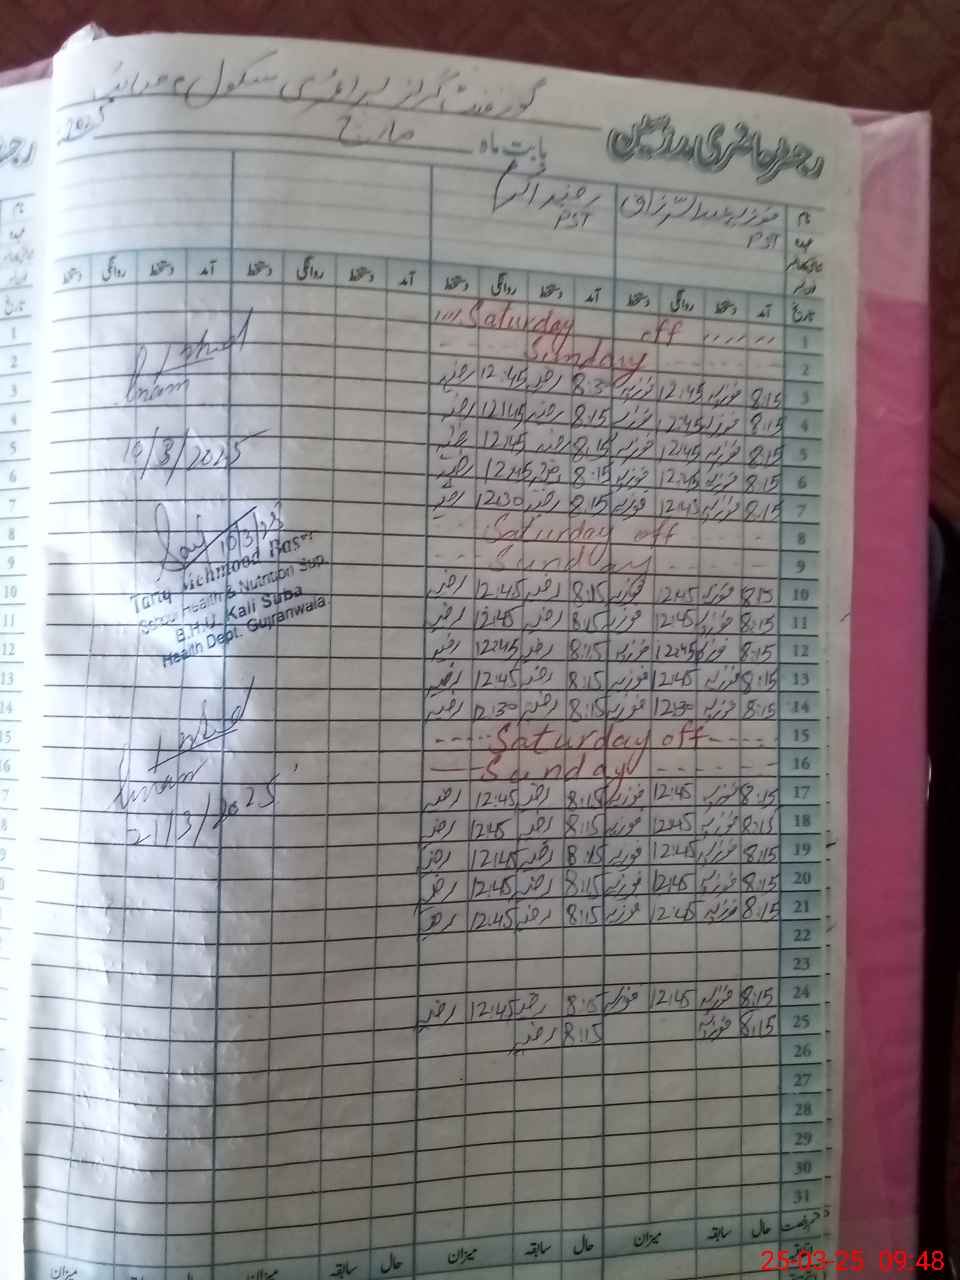 گورنمنٹ گرلز پرائمری سکول
رجسٹر حاضری مدرسین
بابت ماہ مارچ 2025
نام فوزیہ عبدالرزاق
PST
PST
عہدہ
تاریخ آمد دستخط روانگی دستخط آمد دستخط روانگی دستخط آمد دستخط روانگی دستخط آمد دستخط روانگی دستخط
1 Saturday off
2 Sunday
3 8:15 فوزیہ 12:45 فوزیہ 8:3 رضیہ 12:45 رضیہ
4 8:15 فوزیہ 12:45 فوزیہ 8:15 رضیہ 12:45 رضیہ
5 8:15 فوزیہ 12:45 فوزیہ 8:15 رضیہ 12:45 رضیہ
6 8:15 فوزیہ 12:45 فوزیہ 8:15 رضیہ 12:45 رضیہ
7 8:15 فوزیہ 12:45 فوزیہ 8:15 رضیہ 12:30 رضیہ
8 Saturday off
9 Sunday
10 8:15 فوزیہ 12:45 فوزیہ 8:15 رضیہ 12:45 رضیہ
11 8:15 فوزیہ 12:45 فوزیہ 8:15 رضیہ 12:45 رضیہ
12 8:15 فوزیہ 12:45 فوزیہ 8:15 رضیہ 12:45 رضیہ
13 8:15 فوزیہ 12:45 فوزیہ 8:15 رضیہ 12:45 رضیہ
14 8:15 فوزیہ 12:30 فوزیہ 8:15 رضیہ 12:30 رضیہ
15 Saturday off
16 Sunday
17 8:15 فوزیہ 12:45 فوزیہ 8:15 رضیہ 12:45 رضیہ
18 8:15 فوزیہ 12:45 فوزیہ 8:15 رضیہ 12:45 رضیہ
19 8:15 فوزیہ 12:45 فوزیہ 8:15 رضیہ 12:45 رضیہ
20 8:15 فوزیہ 12:45 فوزیہ 8:15 رضیہ 12:45 رضیہ
21 8:15 فوزیہ 12:45 فوزیہ 8:15 رضیہ 12:45 رضیہ
22
23
24 8:15 فوزیہ 12:45 فوزیہ 8:15 رضیہ 12:45 رضیہ
25 8:15 فوزیہ 8:15 رضیہ
26
27
28
29
30
31
10/3/2025
Tariq Mehmood Basra
School Health & Nutrition Sup.
B.H.U. Kali Suba
Health Dept. Gujranwala.
21/3/2025
حال سابقہ میزان حال سابقہ میزان حال سابقہ میزان حال سابقہ میزان
25-03-25 09:48